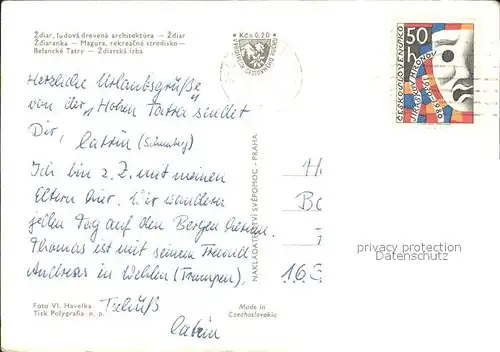 Ždiar, ľudová drevená architektúra — Ždiar
Ždiaranka — Magura, rekreačné stredisko —
Belanské Tatry — Ždiarska izba
Kčs 0,20
50
h
ČESKOSLOVENSKO
1980
Herzliche Urlaubsgrüße
von der „Hohen Tatra" sendet
Dir, Catrin
Ich bin z. Z. mit meinen
Eltern hier. Wir wandern
jeden Tag auf den Bergen herum.
Thomas ist mit seinem Freund
Andreas in (Trampen).
Tschüß
Catrin
NAKLADATELSTVÍ SVÉPOMOC - PRAHA
H
BC
163
privacy protection
Datenschutz
Foto Vl. Havelka
Tisk Polygrafia n. p.
Made in
Czechoslovakia